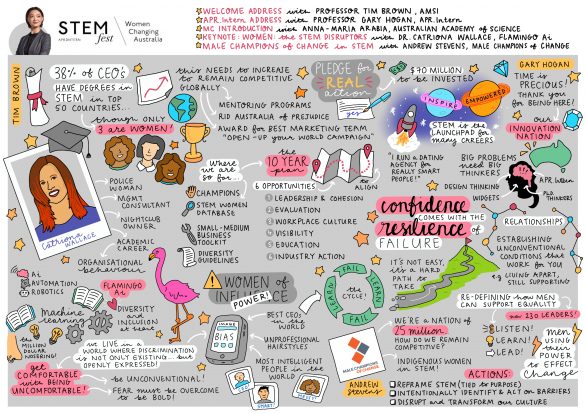 STEM
fest
APR.INTERN
Women
Changing
Australia
WELCOME ADDRESS with PROFESSOR TIM BROWN, AMSI
APR.Intern ADDRESS with PROFESSOR GARY HOGAN, APR.Intern
MC INTRODUCTION with ANNA-MARIA ARABIA, AUSTRALIAN ACADEMY of SCIENCE
KEYNOTE: WOMEN the STEM DISRUPTORS with DR. CATRIONA WALLACE, FLAMINGO Ai
MALE CHAMPIONS of CHANGE in STEM with ANDREW STEVENS, MALE CHAMPIONS of CHANGE
TIM BROWN
38% of CEO's
HAVE DEGREES in
STEM in TOP
50 COUNTRIES...
though only
3 are WOMEN!
this NEEDS to INCREASE
to REMAIN COMPETITIVE
GLOBALLY
MENTORING PROGRAMS
RID AUSTRALIA of PREJUDICE
AWARD for BEST MARKETING TEAM
"OPEN-UP YOUR WORLD CAMPAIGN"
PLEDGE for
REAL
action
yes
$70 MILLION
to be INVESTED
INSPIRE
EMPOWERED
STEM is the
LAUNCHPAD for
many CAREERS
GARY HOGAN
TIME is
PRECIOUS!
THANK you
for BEING HERE!
our
INNOVATION
NATION
Catriona
WALLACE
POLICE
WOMAN
MGMT
CONSULTANT
NIGHTCLUB
OWNER
ACADEMIC
CAREER
ORGANISATIONAL
behaviour
Where
we are
so far...
CHAMPIONS
STEM WOMEN
DATABASE
SMALL-MEDIUM
BUSINESS
TOOLKIT
DIVERSITY
GUIDELINES
the
10 YEAR
plan
ALIGN
6 OPPORTUNITIES
1 LEADERSHIP & COHESION
2 EVALUATION
3 WORKPLACE CULTURE
4 VISIBILITY
5 EDUCATION
6 INDUSTRY ACTION
"I RUN a DATING
AGENCY for
REALLY SMART
PEOPLE!"
BIG PROBLEMS
need BIG
THINKERS
DESIGN THINKING
WIDGETS
APR.Intern
PhD
THINKERS
confidence
COMES WITH the
resilience of
FAILURE
IT'S NOT EASY,
it's a HARD
PATH to
TAKE
RELATIONSHIPS
ESTABLISHING
UNCONVENTIONAL
CONDITIONS
that WORK
for YOU
eg LIVING APART,
STILL SUPPORTING
Ai
AUTOMATION
ROBOTICS
Machine
learning
the
MILLION
DOLLAR
FLAMINGO Ai
DIVERSITY
and
INCLUSION
at heart
WE LIVE in a
WORLD WHERE DISCRIMINATION
is NOT ONLY EXISTING... BUT
OPENLY EXPRESSED!
get
COMFORTABLE
with BEING
UNCOMFORTABLE!
be UNCONVENTIONAL!
FEAR must be OVERCOME
to be BOLD!
WOMEN of
INFLUENCE
POWER!
IMAGE
BIAS
BEST CEO'S
in the
WORLD
UNPROFESSIONAL
HAIRSTYLES
MOST INTELLIGENT
PEOPLE in the
WORLD
FAIL
LEARN
FAIL
LEARN
the
CYCLE!
MALE CHAMPIONS
OF CHANGE
ANDREW
Stevens
WE'RE a NATION of
25 million
HOW do WE REMAIN
COMPETITIVE?
INDIGENOUS WOMEN
in STEM!
RE-DEFINING how MEN
CAN SUPPORT EQUALITY
now 230 LEADERS!
LISTEN!
LEARN!
LEAD!
MEN
using
THEIR
POWER
to EFFECT
CHANGE
ACTIONS
REFRAME STEM (TIED to PURPOSE)
INTENTIONALLY IDENTIFY & ACT on BARRIERS
DISRUPT and TRANSFORM OUR CULTURE